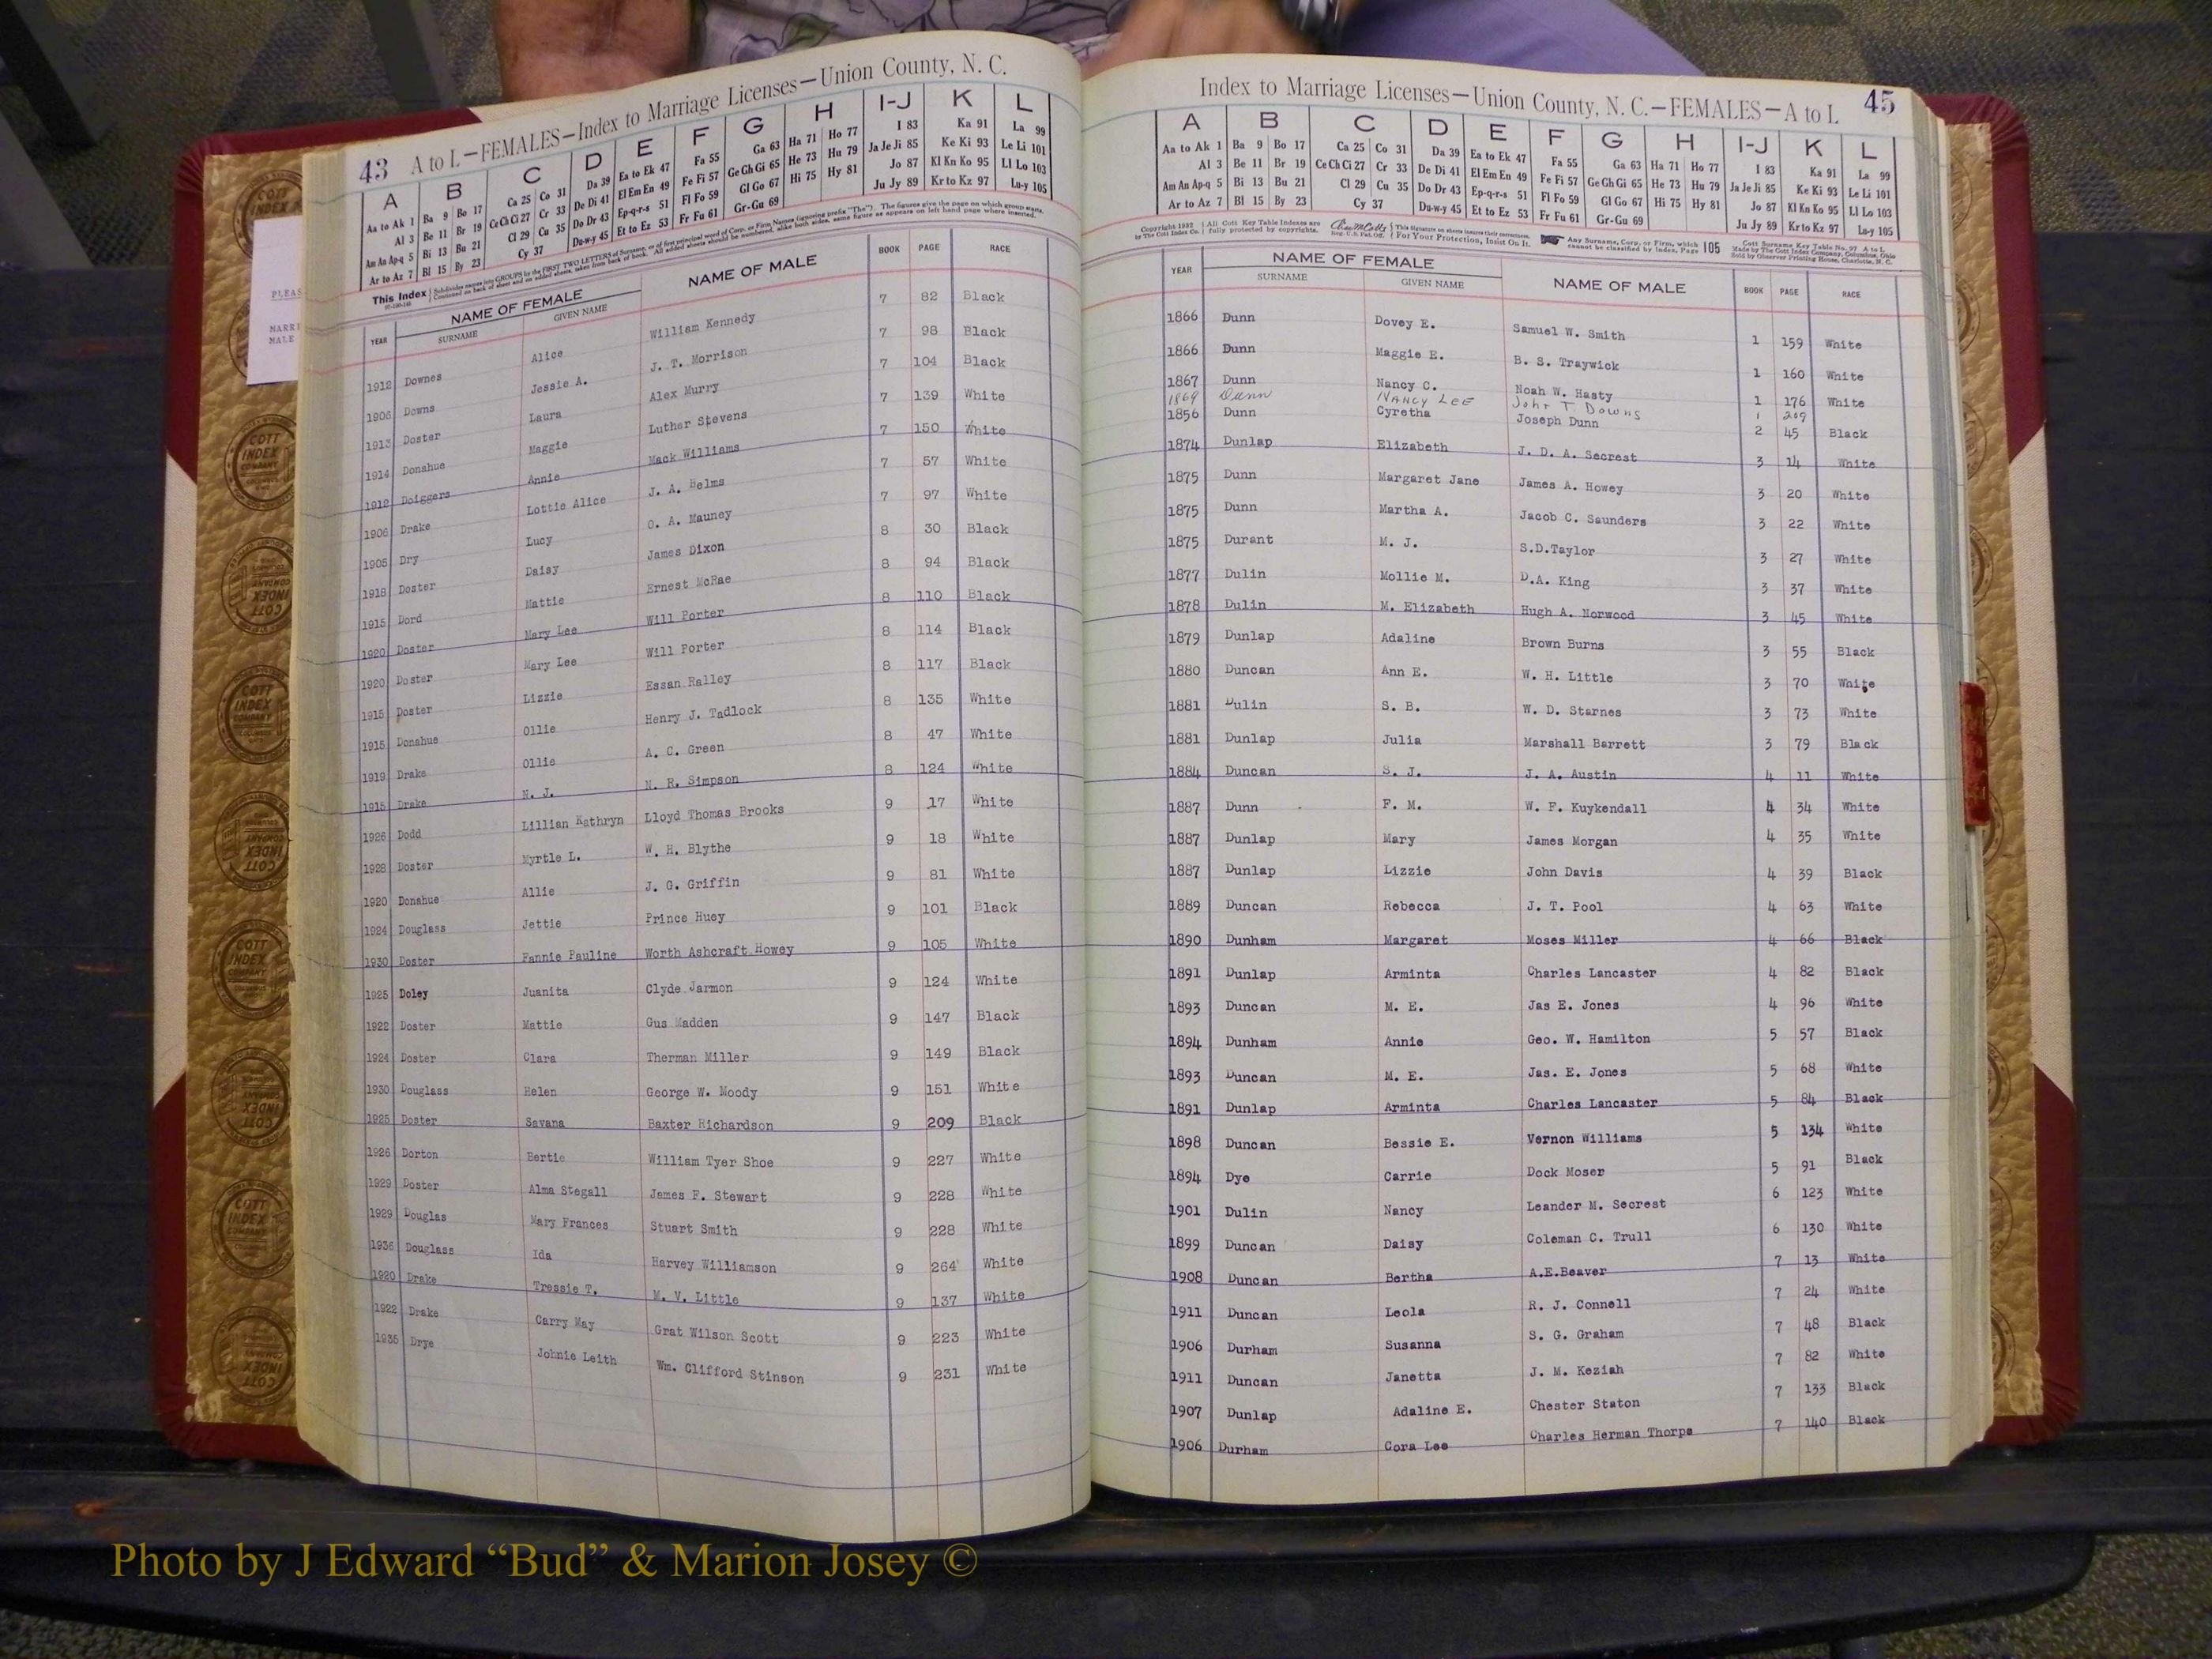 43 A to L—FEMALES—Index to Marriage Licenses—Union County, N. C.
A B C D E F G H I-J K L
Aa to Ak 1 Ba 9 Bo 17 Ca 25 Co 31 Da 39 Ea to Ek 47 Fa 55 Ga 63 Ha 71 Ho 77 I 83 Ka 91 La 99
Al 3 Be 11 Br 19 Ce Ch Ci 27 Cr 33 De Di 41 El Em En 49 Fe Fi 57 Ge Gh Gi 65 He 73 Hu 79 Ja Je Ji 85 Ke Ki 93 Le Li 101
Am An Ap-q 5 Bi 13 Bu 21 Cl 29 Cu 35 Do Dr 43 Ep-q-r-s 51 Fl Fo 59 Gl Go 67 Hi 75 Hy 81 Jo 87 Kl Kn Ko 95 Ll Lo 103
Ar to Az 7 Bl 15 By 23 Cy 37 Du-w-y 45 Et to Ez 53 Fr Fu 61 Gr-Gu 69 Ju Jy 89 Kr to Kz 97 Lu-y 105
This Index
YEAR NAME OF FEMALE NAME OF MALE BOOK PAGE RACE
SURNAME GIVEN NAME
1912 Downes Alice William Kennedy 7 82 Black
1906 Downs Jessie A. J. T. Morrison 7 98 Black
1913 Doster Laura Alex Murry 7 104 Black
1914 Donahue Maggie Luther Stevens 7 139 White
1912 Doiggers Annie Mack Williams 7 150 White
1906 Drake Lottie Alice J. A. Helms 7 57 White
1905 Dry Lucy O. A. Mauney 7 97 White
1918 Doster Daisy James Dixon 8 30 Black
1915 Dord Mattie Ernest McRae 8 94 Black
1920 Doster Mary Lee Will Porter 8 110 Black
1920 Doster Mary Lee Will Porter 8 114 Black
1915 Doster Lizzie Essan Ralley 8 117 Black
1915 Donahue Ollie Henry J. Tadlock 8 135 White
1919 Drake Ollie A. C. Green 8 47 White
1915 Drake N. J. N. R. Simpson 8 124 White
1926 Dodd Lillian Kathryn Lloyd Thomas Brooks 9 17 White
1928 Doster Myrtle L. W. H. Blythe 9 18 White
1920 Donahue Allie J. G. Griffin 9 81 White
1924 Douglass Jettie Prince Huey 9 101 Black
1930 Doster Fannie Pauline Worth Ashcraft Howey 9 105 White
1925 Doley Juanita Clyde Jarmon 9 124 White
1922 Doster Mattie Gus Madden 9 147 Black
1924 Doster Clara Therman Miller 9 149 Black
1930 Douglass Helen George W. Moody 9 151 White
1925 Doster Savana Baxter Richardson 9 209 Black
1926 Dorton Bertie William Tyer Shoe 9 227 White
1929 Doster Alma Stegall James F. Stewart 9 228 White
1929 Douglas Mary Frances Stuart Smith 9 228 White
1936 Douglass Ida Harvey Williamson 9 264 White
1920 Drake Tressie T. M. V. Little 9 137 White
1922 Drake Carry May Grat Wilson Scott 9 223 White
1935 Drye Johnie Leith Wm. Clifford Stinson 9 231 White
Index to Marriage Licenses—Union County, N. C.—FEMALES—A to L 45
A B C D E F G H I-J K L
Aa to Ak 1 Ba 9 Bo 17 Ca 25 Co 31 Da 39 Ea to Ek 47 Fa 55 Ga 63 Ha 71 Ho 77 I 83 Ka 91 La 99
Al 3 Be 11 Br 19 Ce Ch Ci 27 Cr 33 De Di 41 El Em En 49 Fe Fi 57 Ge Gh Gi 65 He 73 Hu 79 Ja Je Ji 85 Ke Ki 93 Le Li 101
Am An Ap-q 5 Bi 13 Bu 21 Cl 29 Cu 35 Do Dr 43 Ep-q-r-s 51 Fl Fo 59 Gl Go 67 Hi 75 Hy 81 Jo 87 Kl Kn Ko 95 Ll Lo 103
Ar to Az 7 Bl 15 By 23 Cy 37 Du-w-y 45 Et to Ez 53 Fr Fu 61 Gr-Gu 69 Ju Jy 89 Kr to Kz 97 Lu-y 105
Copyright 1932 by The Cott Index Co. All Cott Key Table Indexes are fully protected by copyrights. For Your Protection, Insist On It. Any Surname, Corp. or Firm, which cannot be classified by Index, Page 105
YEAR NAME OF FEMALE NAME OF MALE BOOK PAGE RACE
SURNAME GIVEN NAME
1866 Dunn Dovey E. Samuel W. Smith 1 159 White
1866 Dunn Maggie E. B. S. Traywick 1 160 White
1867 Dunn Nancy C. Noah W. Hasty 1 176 White
1869 Dunn NANCY LEE John T Downs 1 209
1856 Dunn Cyretha Joseph Dunn 2 45 Black
1874 Dunlap Elizabeth J. D. A. Secrest 3 14 White
1875 Dunn Margaret Jane James A. Howey 3 20 White
1875 Dunn Martha A. Jacob C. Saunders 3 22 White
1875 Durant M. J. S.D.Taylor 3 27 White
1877 Dulin Mollie M. D.A. King 3 37 White
1878 Dulin M. Elizabeth Hugh A. Norwood 3 45 White
1879 Dunlap Adaline Brown Burns 3 55 Black
1880 Duncan Ann E. W. H. Little 3 70 White
1881 Dulin S. B. W. D. Starnes 3 73 White
1881 Dunlap Julia Marshall Barrett 3 79 Black
1884 Duncan S. J. J. A. Austin 4 11 White
1887 Dunn F. M. W. F. Kuykendall 4 34 White
1887 Dunlap Mary James Morgan 4 35 White
1887 Dunlap Lizzie John Davis 4 39 Black
1889 Duncan Rebecca J. T. Pool 4 63 White
1890 Dunham Margaret Moses Miller 4 66 Black
1891 Dunlap Arminta Charles Lancaster 4 82 Black
1893 Duncan M. E. Jas E. Jones 4 96 White
1894 Dunham Annie Geo. W. Hamilton 5 57 Black
1893 Duncan M. E. Jas. E. Jones 5 68 White
1891 Dunlap Arminta Charles Lancaster 5 84 Black
1898 Duncan Bessie E. Vernon Williams 5 134 White
1894 Dye Carrie Dock Moser 5 91 Black
1901 Dulin Nancy Leander M. Secrest 6 123 White
1899 Duncan Daisy Coleman C. Trull 6 130 White
1908 Duncan Bertha A.E.Beaver 7 13 White
1911 Duncan Leola R. J. Connell 7 24 White
1906 Durham Susanna S. G. Graham 7 48 Black
1911 Duncan Janetta J. M. Keziah 7 82 White
1907 Dunlap Adaline E. Chester Staton 7 133 Black
1906 Durham Cora Lee Charles Herman Thorpe 7 140 Black
Photo by J Edward “Bud” & Marion Josey ©